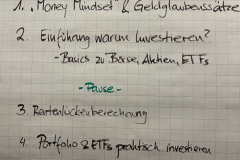 1. "Money Mindset" & Geldglaubenssätze
2. Einführung warum Investieren?
- Basics zu Börse, Aktien, ETFs
- Pause -
3. Rentenlückenberechnung
4. Portfolio & ETFs praktisch investieren